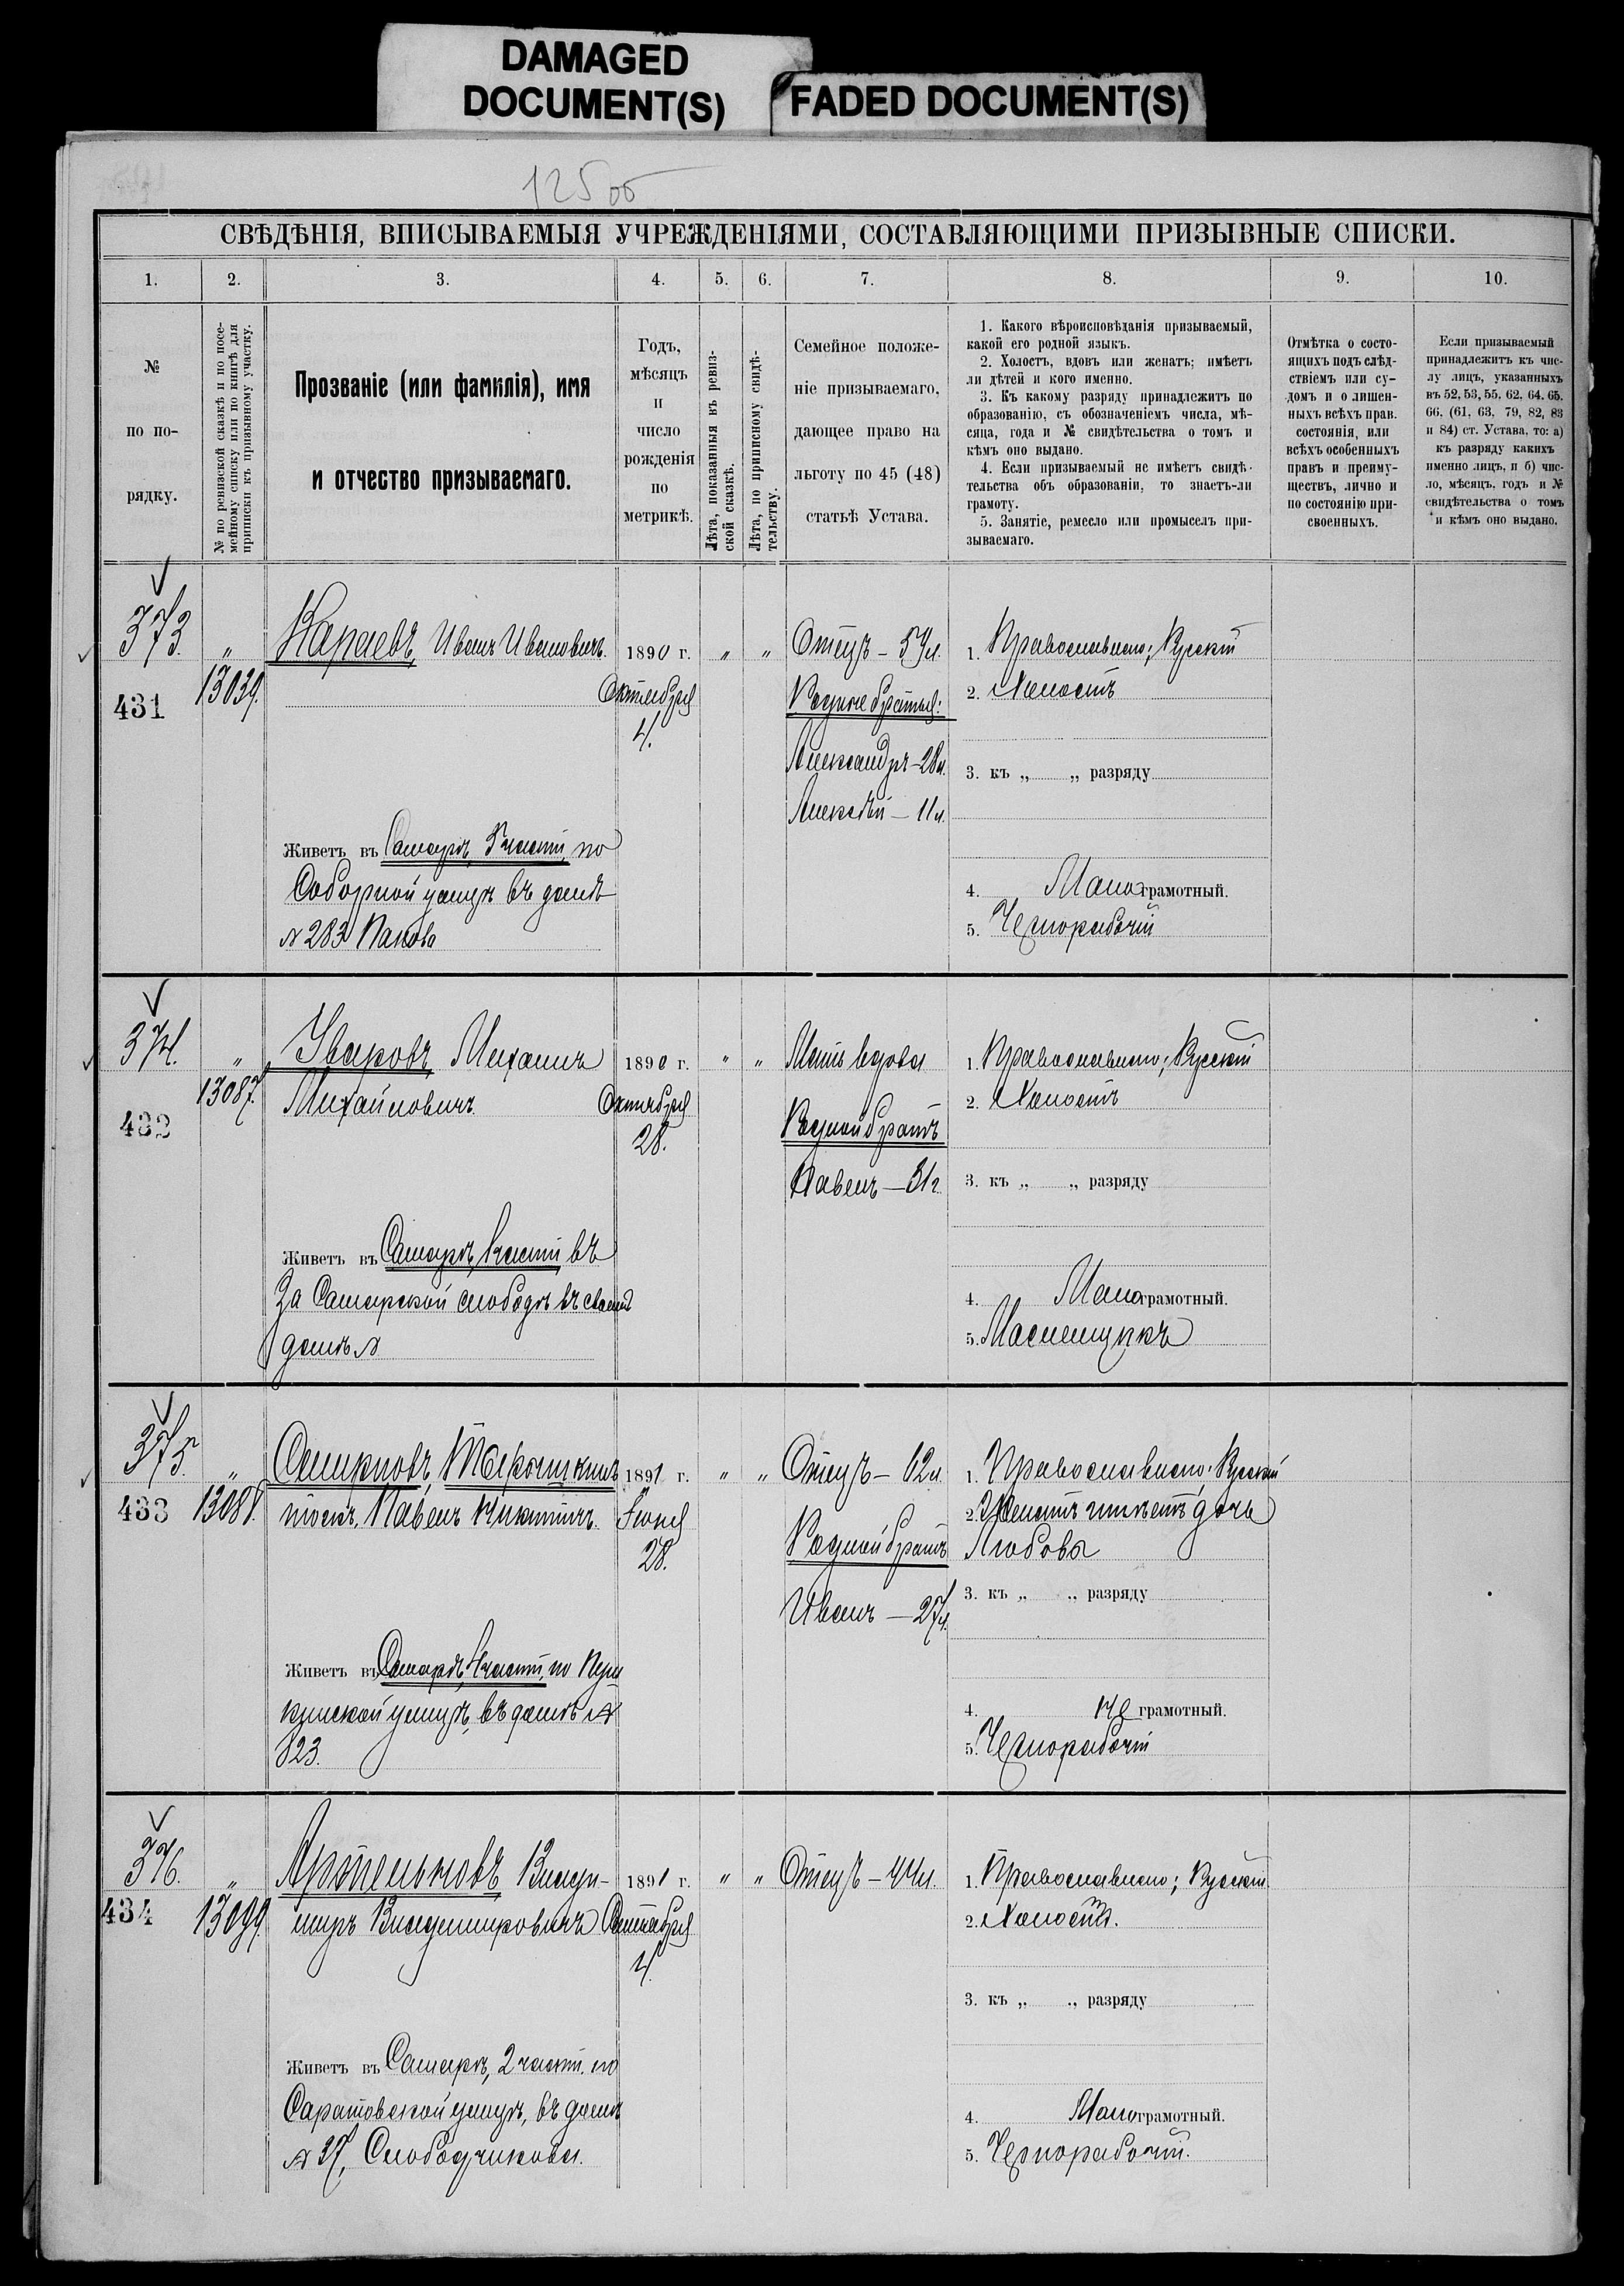 DAMAGED
DOCUMENT(S)
FADED DOCUMENT(S)
125 об
СВѢДѢНІЯ, ВПИСЫВАЕМЫЯ УЧРЕЖДЕНІЯМИ, СОСТАВЛЯЮЩИМИ ПРИЗЫВНЫЕ СПИСКИ.
1.
2.
3.
4.
5.
6.
7.
8.
9.
10.
№
по по-
рядку.
№ по ревизской сказкѣ и по посе-
мейному списку или по книгѣ для
приписки къ призывному участку.
Прозваніе (или фамилія), имя
и отчество призываемаго.
Годъ,
мѣсяцъ
и
число
рожденія
по
метрикѣ.
Лѣта, показанныя въ ревиз-
ской сказкѣ.
Лѣта, по приписному свидѣ-
тельству.
Семейное положе-
ніе призываемаго,
дающее право на
льготу по 45 (48)
статьѣ Устава.
1. Какого вѣроисповѣданія призываемый,
какой его родной языкъ.
2. Холостъ, вдовъ или женатъ; имѣетъ
ли дѣтей и кого именно.
3. Къ какому разряду принадлежитъ по
образованію, съ обозначеніемъ числа, мѣ-
сяца, года и № свидѣтельства о томъ и
кѣмъ оно выдано.
4. Если призываемый не имѣетъ свидѣ-
тельства объ образованіи, то знаетъ-ли
грамоту.
5. Занятіе, ремесло или промыселъ при-
зываемаго.
Отмѣтка о состо-
ящихъ подъ слѣд-
ствіемъ или су-
домъ и о лишен-
ныхъ всѣхъ прав.
состоянія, или
всѣхъ особенныхъ
правъ и преиму-
ществъ, лично и
по состоянію при-
своенныхъ.
Если призываемый
принадлежитъ къ чис-
лу лицъ, указанныхъ
въ 52, 53, 55, 62, 64, 65,
66, (61, 63, 79, 82, 83
и 84) ст. Устава, то: а)
къ разряду какихъ
именно лицъ, и б) чис-
ло, мѣсяцъ, годъ и №
свидѣтельства о томъ
и кѣмъ оно выдано.
373.
431
"
13039.
Караевъ, Иванъ Ивановичъ.
1890 г.
Октября
4.
"
"
Отецъ - 59 л.
Родные братья:
Александръ - 28 л.
Алексѣй - 11 л.
1. Православно; Русскій
2. Холостъ
3. къ „ „ разряду
4. Малограмотный.
5. Чернорабочій
Живетъ въ Самарѣ, 5 части, по
Соборной улицѣ въ домѣ
№ 283
374.
432
"
13087.
Уваровъ, Михаилъ
Михайловичъ.
1890 г.
Октября
28.
"
"
Мать вдова
Родной братъ
Павелъ - 31 г.
1. Православно; Русскій
2. Холостъ
3. къ „ „ разряду
4. Малограмотный.
5.
Живетъ въ Самарѣ, части, въ
За Самарской слободѣ въ своемъ
домѣ №
375.
433
"
13088.
Смирновъ,
Павелъ Никитичъ.
1891 г.
Іюня
28.
"
"
Отецъ - 62 л.
Родной братъ
Иванъ - 27 л.
1. Православно; Русскій
2. Женатъ имѣетъ дочь
Любовь
3. къ „ „ разряду
4. не грамотный.
5. Чернорабочій
Живетъ въ Самарѣ, 4 части, по
улицѣ, въ домѣ №
123.
376.
434
"
13099.
Артельновъ Влади-
миръ Владимировичъ
1891 г.
Сентября
4.
"
"
Отецъ - 44 л.
1. Православно; Русскій
2. Холостъ.
3. къ „ „ разряду
4. Малограмотный.
5. Чернорабочій.
Живетъ въ Самарѣ, 2 части, по
Саратовской улицѣ, въ домѣ
№ 37, Слободчикова.